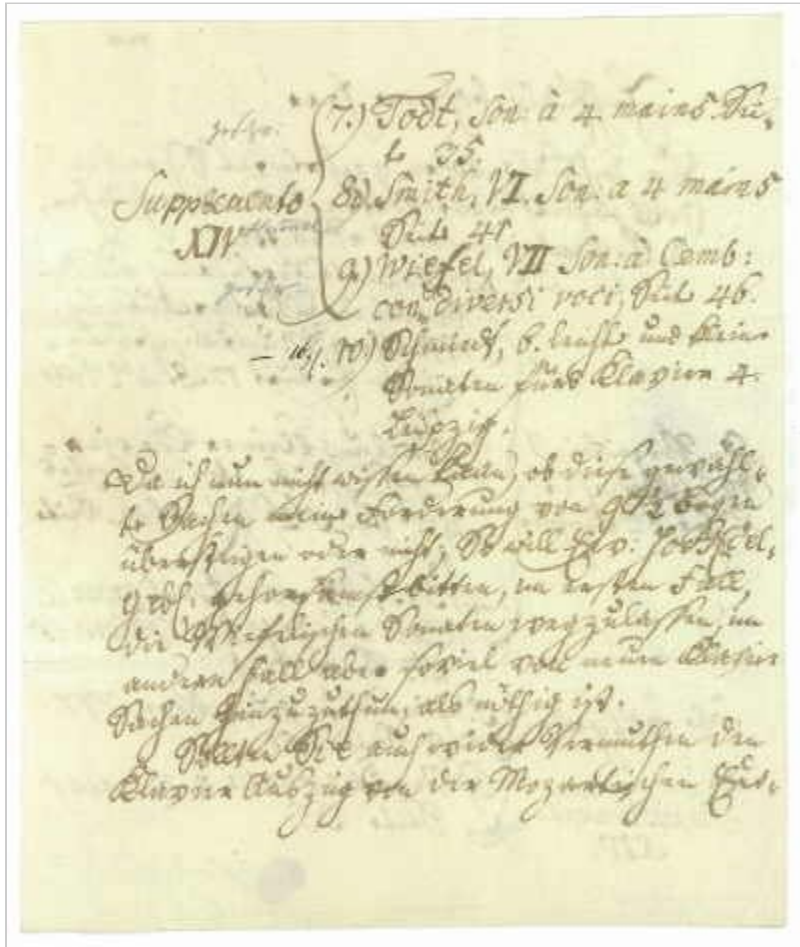 7.) Todt, Son: à 4 mains. Sei-
te 35.
Supplemento XIV
8.) Smith, VI. Son. a 4 mains
Seite 41
9.) Wiefel, VII Son: à Cemb:
con diversi voci, Seite 46.
10.) Schmidt, 6. leichte und kleine
Sonaten fürs Klavier 4.
Leipzig.
Da ich nun nicht wissen kann, ob diese gewähl-
te Sachen meine Forderung von 9 1/2 Bogen
übersteigen oder nicht; So will Ew. HochEdel-
geb. gehorsamst bitten, im ersten Fall,
die Wiefelischen Sonaten wegzulassen, im
andern Fall aber soviel von neuen Klavier
Sachen hinzuzuthun, als nöthig ist.
Sollten Sie auch wider Vermuthen den
Klavier Auszug von der Mozartischen